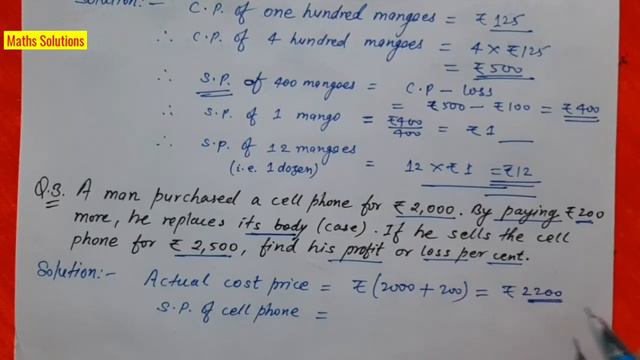 Solution:- C.P. of one hundred mangoes = ₹125
Maths Solutions
∴ C.P. of 4 hundred mangoes = 4 × ₹125
= ₹500
∴ S.P. of 400 mangoes = C.P - loss
= ₹500 - ₹100 = ₹400
∴ S.P. of 1 mango = ₹400/400 = ₹1
∴ S.P. of 12 mangoes
(i.e. 1 dozen) = 12 × ₹1 = ₹12
Q.3. A man purchased a cell phone for ₹2,000. By paying ₹200
more, he replaces its body (case). If he sells the cell
phone for ₹2,500, find his profit or loss per cent.
Solution:- Actual cost price = ₹(2000+200) = ₹2200
S.P. of cell phone =